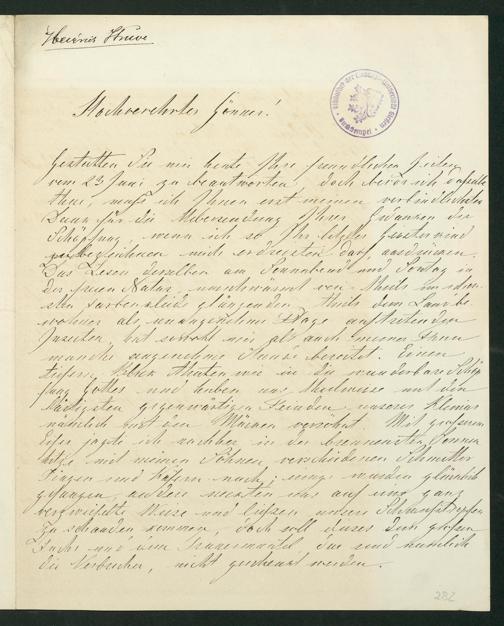 Heinris Struve
Hochverehrter Gönner!
Gestatten Sie mir heute Ihre freundlichen Zeilen
vom 23 Juni zu beantworten, doch bevor ich dasselbe
thue, muß ich Ihnen erst meinen verbindlichsten
Dank für die Uebersendung Ihrer Wanzen der
Schöpfung, wenn ich so Ihr
mich erdreisten darf, ausdrücken.
Das Lesen derselben am Sonnabend und Sontag in
der freien Natur, umschwärmt von theils im
sten Farbenkleide glänzenden, theils dem Landbe-
wohner als unangenehme Plage auftretenden
Insecten, hat sowohl mir als auch meiner Frau
manche angenehme Stunde bereitet. Einen
tiefern Blick thaten wir in die wunderbare Schöp-
fung Gottes und haben uns mit den
lästigsten gegenwärtigen Feinden unseres Klimas
nämlich mit den Mücken versöhnt. Mit großem
Eifer jagte ich nachher in der brennenden Sonnen
hitze mit meinen Söhnen verschiedenen Schmetter
lingen und Käfern nach, einige wurden glücklich
gefangen, andere neckten uns auf eine ganz
Weise und ließen unsere
zu schanden kommen, doch soll dieses dem großen
Fuchs und dem Trauermantel, die sind nämlich
die Verbrecher, nicht geschenkt werden.
282